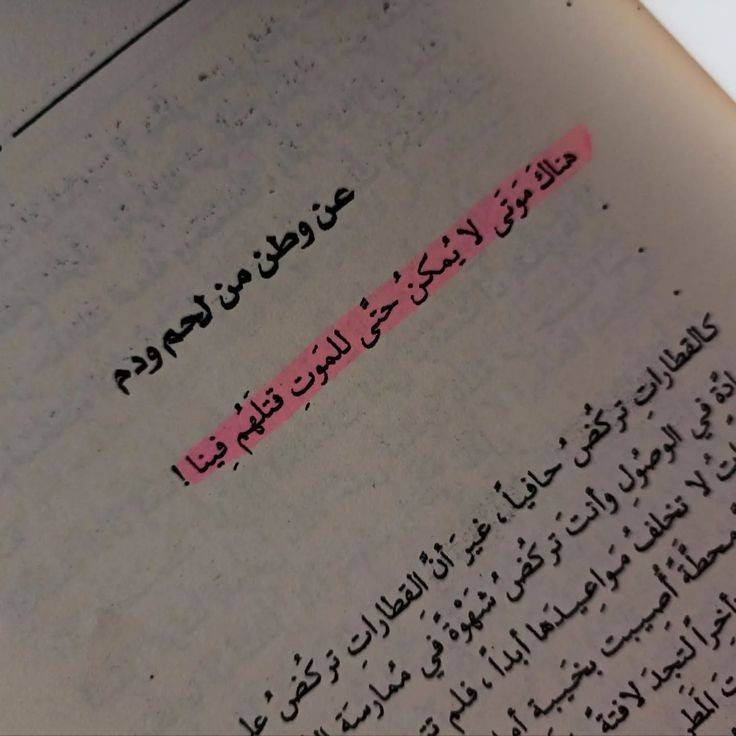 عن وطن من لحم ودم
هناكَ مَوتَى لا يُمكنُ حتَّى للمَوتِ قتلَهُم فِينا !
كالقطاراتِ تركُضُ حافياً ، غيرَ أنَّ القطاراتِ تركُضُ
في الوصُولِ وأنتَ تركُضُ شهْوَةً في مُمارسَة
لا تخلفُ مَواعِيدَها أبداً ، فلم
محطَّةً أُصِيبت بخَيبة
لتجدَ لافتةً